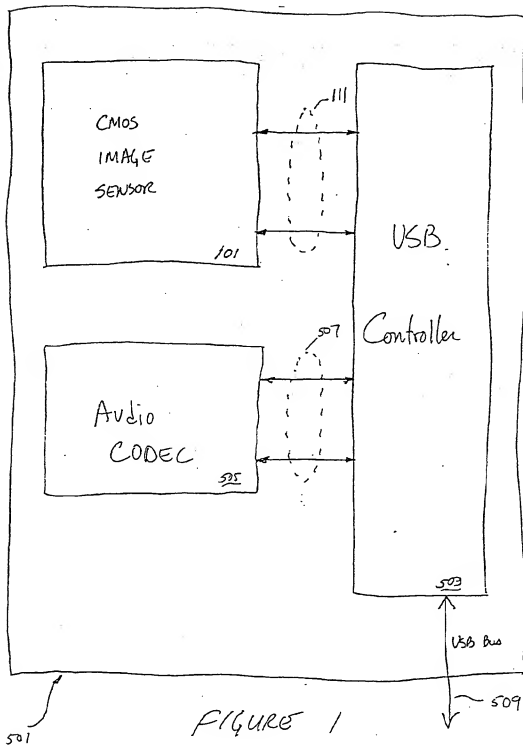 CMOS
IMAGE
SENSOR
101
111
USB
Controller
507
Audio
CODEC
505
503
USB Bus
509
501
FIGURE 1